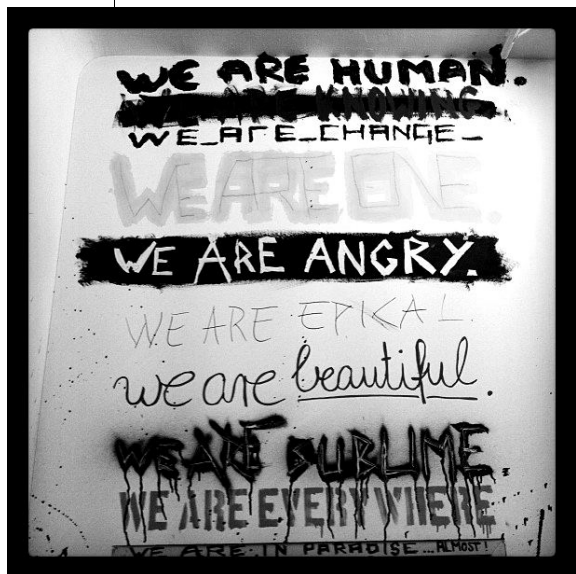 WE ARE HUMAN.
WE ARE KNOWING
WE_ARE_CHANGE_
WE ARE ONE.
WE ARE ANGRY.
WE ARE EPICAL.
we are beautiful.
WE ARE SUBLIME.
WE ARE EVERYWHERE
WE ARE IN PARADISE...ALMOST!